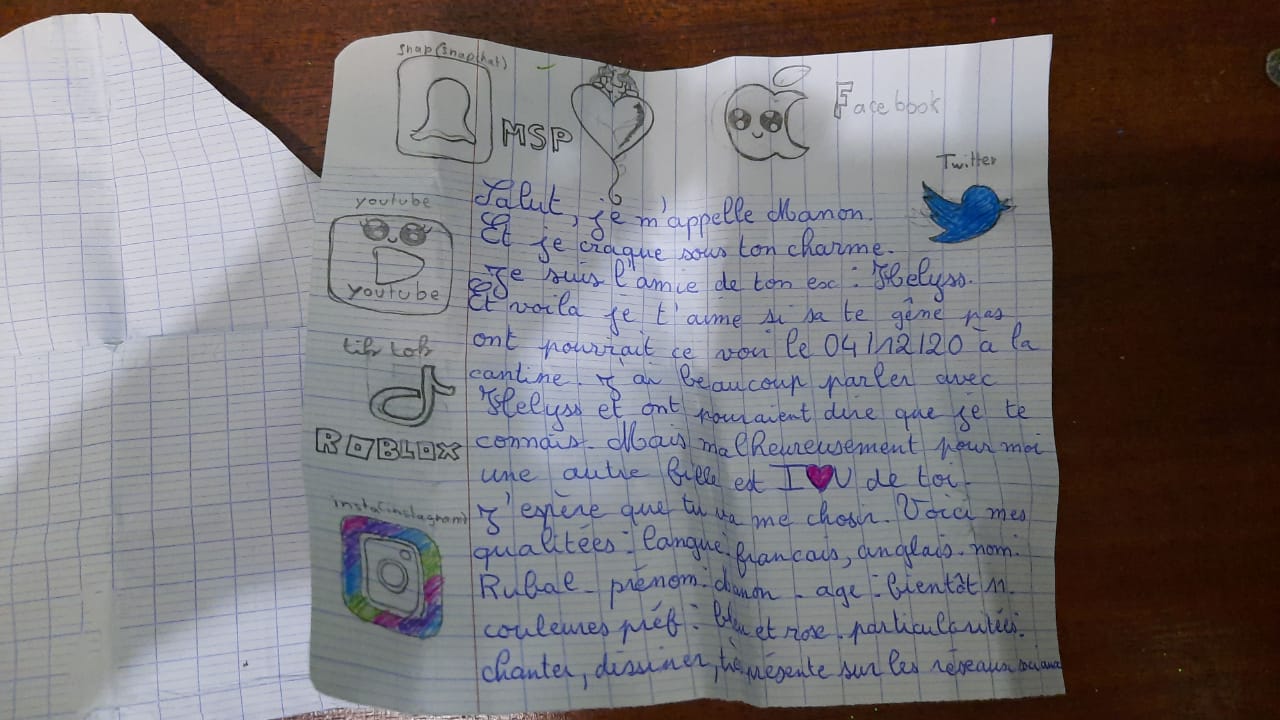 Snap(snapchat)
MSP
Facebook
Twitter
youtube
youtube
tik tok
ROBLOX
insta(instagram)
Salut, je m'appelle Manon.
Et je craque sous ton charme.
Je suis l'amie de ton ex : Helyss.
Et voila je t'aime si sa te gêne pas
ont pourrait ce voir le 04/12/20 à la
cantine. J'ai beaucoup parler avec
Helyss et ont pouraient dire que je te
connais. Mais malheureusement pour moi
une autre fille est I ♥ U de toi.
J'espère que tu va me chosir. Voici mes
qualitées : langue: francais, anglais. nom:
Rubal. prénom: Manon. age : bientôt 11.
couleures préf : bleu et rose. particularitées:
chanter, dessiner, très présente sur les réseaux sociaux